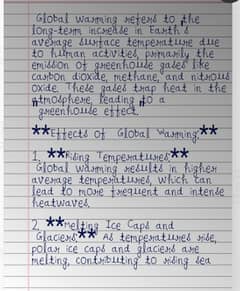 Global warming refers to the
long-term increase in Earth's
average surface temperature due
to human activities, primarily the
emission of greenhouse gases like
carbon dioxide, methane, and nitrous
oxide. These gases trap heat in the
atmosphere, leading to a
greenhouse effect.
**Effects of Global Warming:**
1. **Rising Temperatures:**
Global warming results in higher
average temperatures, which can
lead to more frequent and intense
heatwaves.
2. **Melting Ice Caps and
Glaciers:** As temperatures rise,
polar ice caps and glaciers are
melting, contributing to rising sea